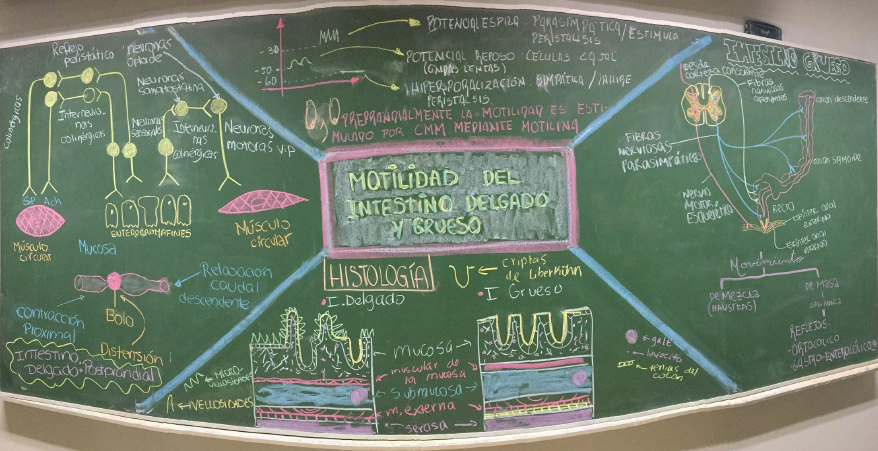 Reflejo
peristático
Neuronas
opioide
Neuronas
somatostatina
Colinérgicos
colinérgicas
Neuronas
sensoriales
colinérgicas
Neuronas
motoras V.I.P
SP Ach
Músculo
circular
ENTEROCROMAFINES
Mucosa
Músculo
circular
Contracción
Proximal
Bolo
Distensión
Relajación
caudal
descendente
Intestino
Delgado Postprandial
-30
-50
-60
POTENCIAL ESPIGA. PARASIMPÁTICA/ESTIMULA
PERISTALSIS
POTENCIAL REPOSO CÉLULAS CAJAL
(ONDAS LENTAS)
HIPERPOLARIZACIÓN SIMPÁTICA/INHIBE
PERISTALSIS.
PREPRANDIALMENTE LA MOTILIDAD ES ESTI-
MULADO POR CMM MEDIANTE MOTILINA
MOTILIDAD DEL
INTESTINO DELGADO
Y GRUESO
HISTOLOGÍA
criptas
de Liberkühn
I. Delgado
I Grueso
mucosa
muscular de
la mucosa
submucosa
m. externa
serosa
MICRO-
VELLOSIDADES
VELLOSIDADES
galt
linfocito
tenias del
colon
INTESTINO GRUESO
Desde
Fibras
nerviosas
colon descendente
Fibras
nerviosas
Parasimpáticas
Nervio
Motor
Esquelético
colon sigmoide
RECTO
Movimiento
De Mezcla
(HAUSTRAS)
De Masa
REFLEJOS:
-ORTOCÓLICO